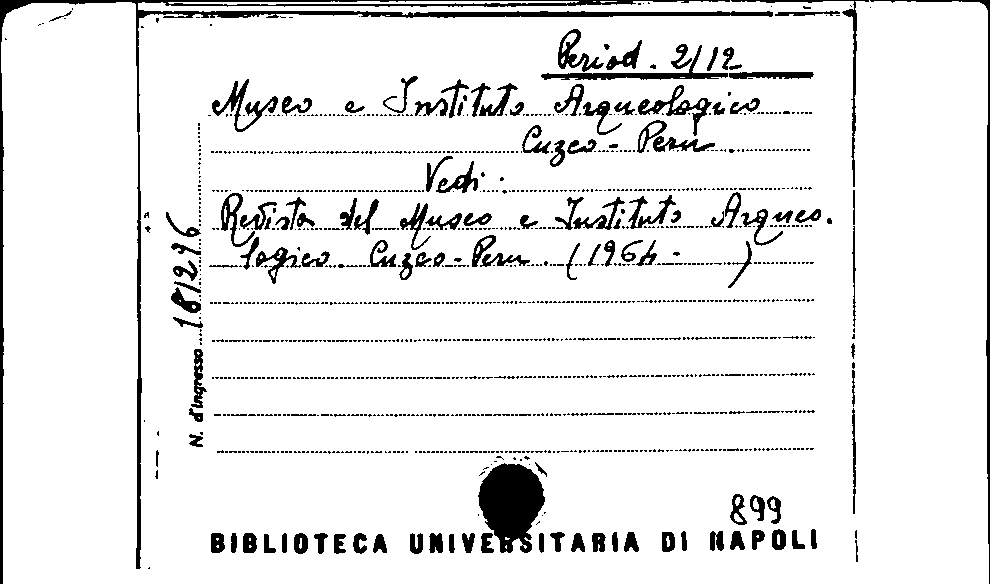 Period. 2/12
Museo e Instituto Arqueologico
Cuzco - Perù.
Vedi:
Revista del Museo e Instituto Arqueo.
logico. Cuzco - Peru. (1964 - )
N. d'ingresso 181296
899
BIBLIOTECA UNIVERSITARIA DI NAPOLI